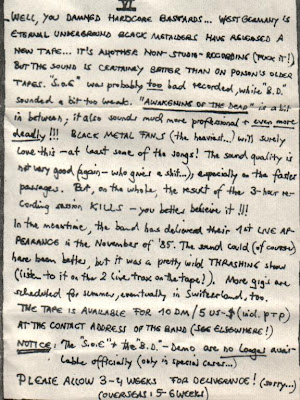 VI
WELL, YOU DAMNED HARDCORE BASTARDS... WEST GERMANY'S
ETERNAL UNDERGROUND BLACK METALDERS HAVE RELEASED A
NEW TAPE... IT'S ANOTHER NON-STUDIO-RECORDING (FUCK IT!)
BUT THE SOUND IS CERTAINLY BETTER THAN ON POISON'S OLDER
TAPES. "S.O.E" was probably too bad recorded, while "B.D."
sounded a bit too weak. "AWAKENING OF THE DEAD" is a bit
in between, it also sounds much more professional + even more
deadly!!! BLACK METAL FANS (the heaviest...) will surely
love this - at least some of the songs! The sound quality is
not very good (again - who gives a shit...), especially on the faster
passages. But, on the whole, the result of the 3-hour re-
cording session KILLS - you better believe it!!!
In the meantime, the band has delivered their 1ST LIVE APP-
EARANCE in the November of '85. The sound could (of course)
have been better, but it was a pretty wild THRASHING show
(listen to it on the 2 live trax on the tape!). More gigs are
scheduled for summer, eventually in Switzerland, too.
THE TAPE IS AVAILABLE FOR 10 DM / 5 US-$ (incl. p+p)
AT THE CONTACT ADDRESS OF THE BAND (SEE ELSEWHERE!)
NOTICE: The "S.O.E" + the "B.D." - Demo are no longer avai-
lable officially (only in special cases...)
PLEASE ALLOW 3-4 WEEKS FOR DELIVERANCE! (sorry...)
(OVERSEAS: 5-6 WEEKS)